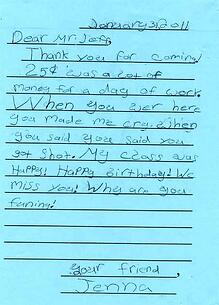 January 3, 2011
Dear Mr. Jeff,
Thank you for coming!
25¢ was a lot of
money for a day of work.
When you wer here
you made me cry. When
you said you said you
got shot. My class was
Happy! Happy Birthday! We
miss you! Why are you
funing!
your friend,
Jenna